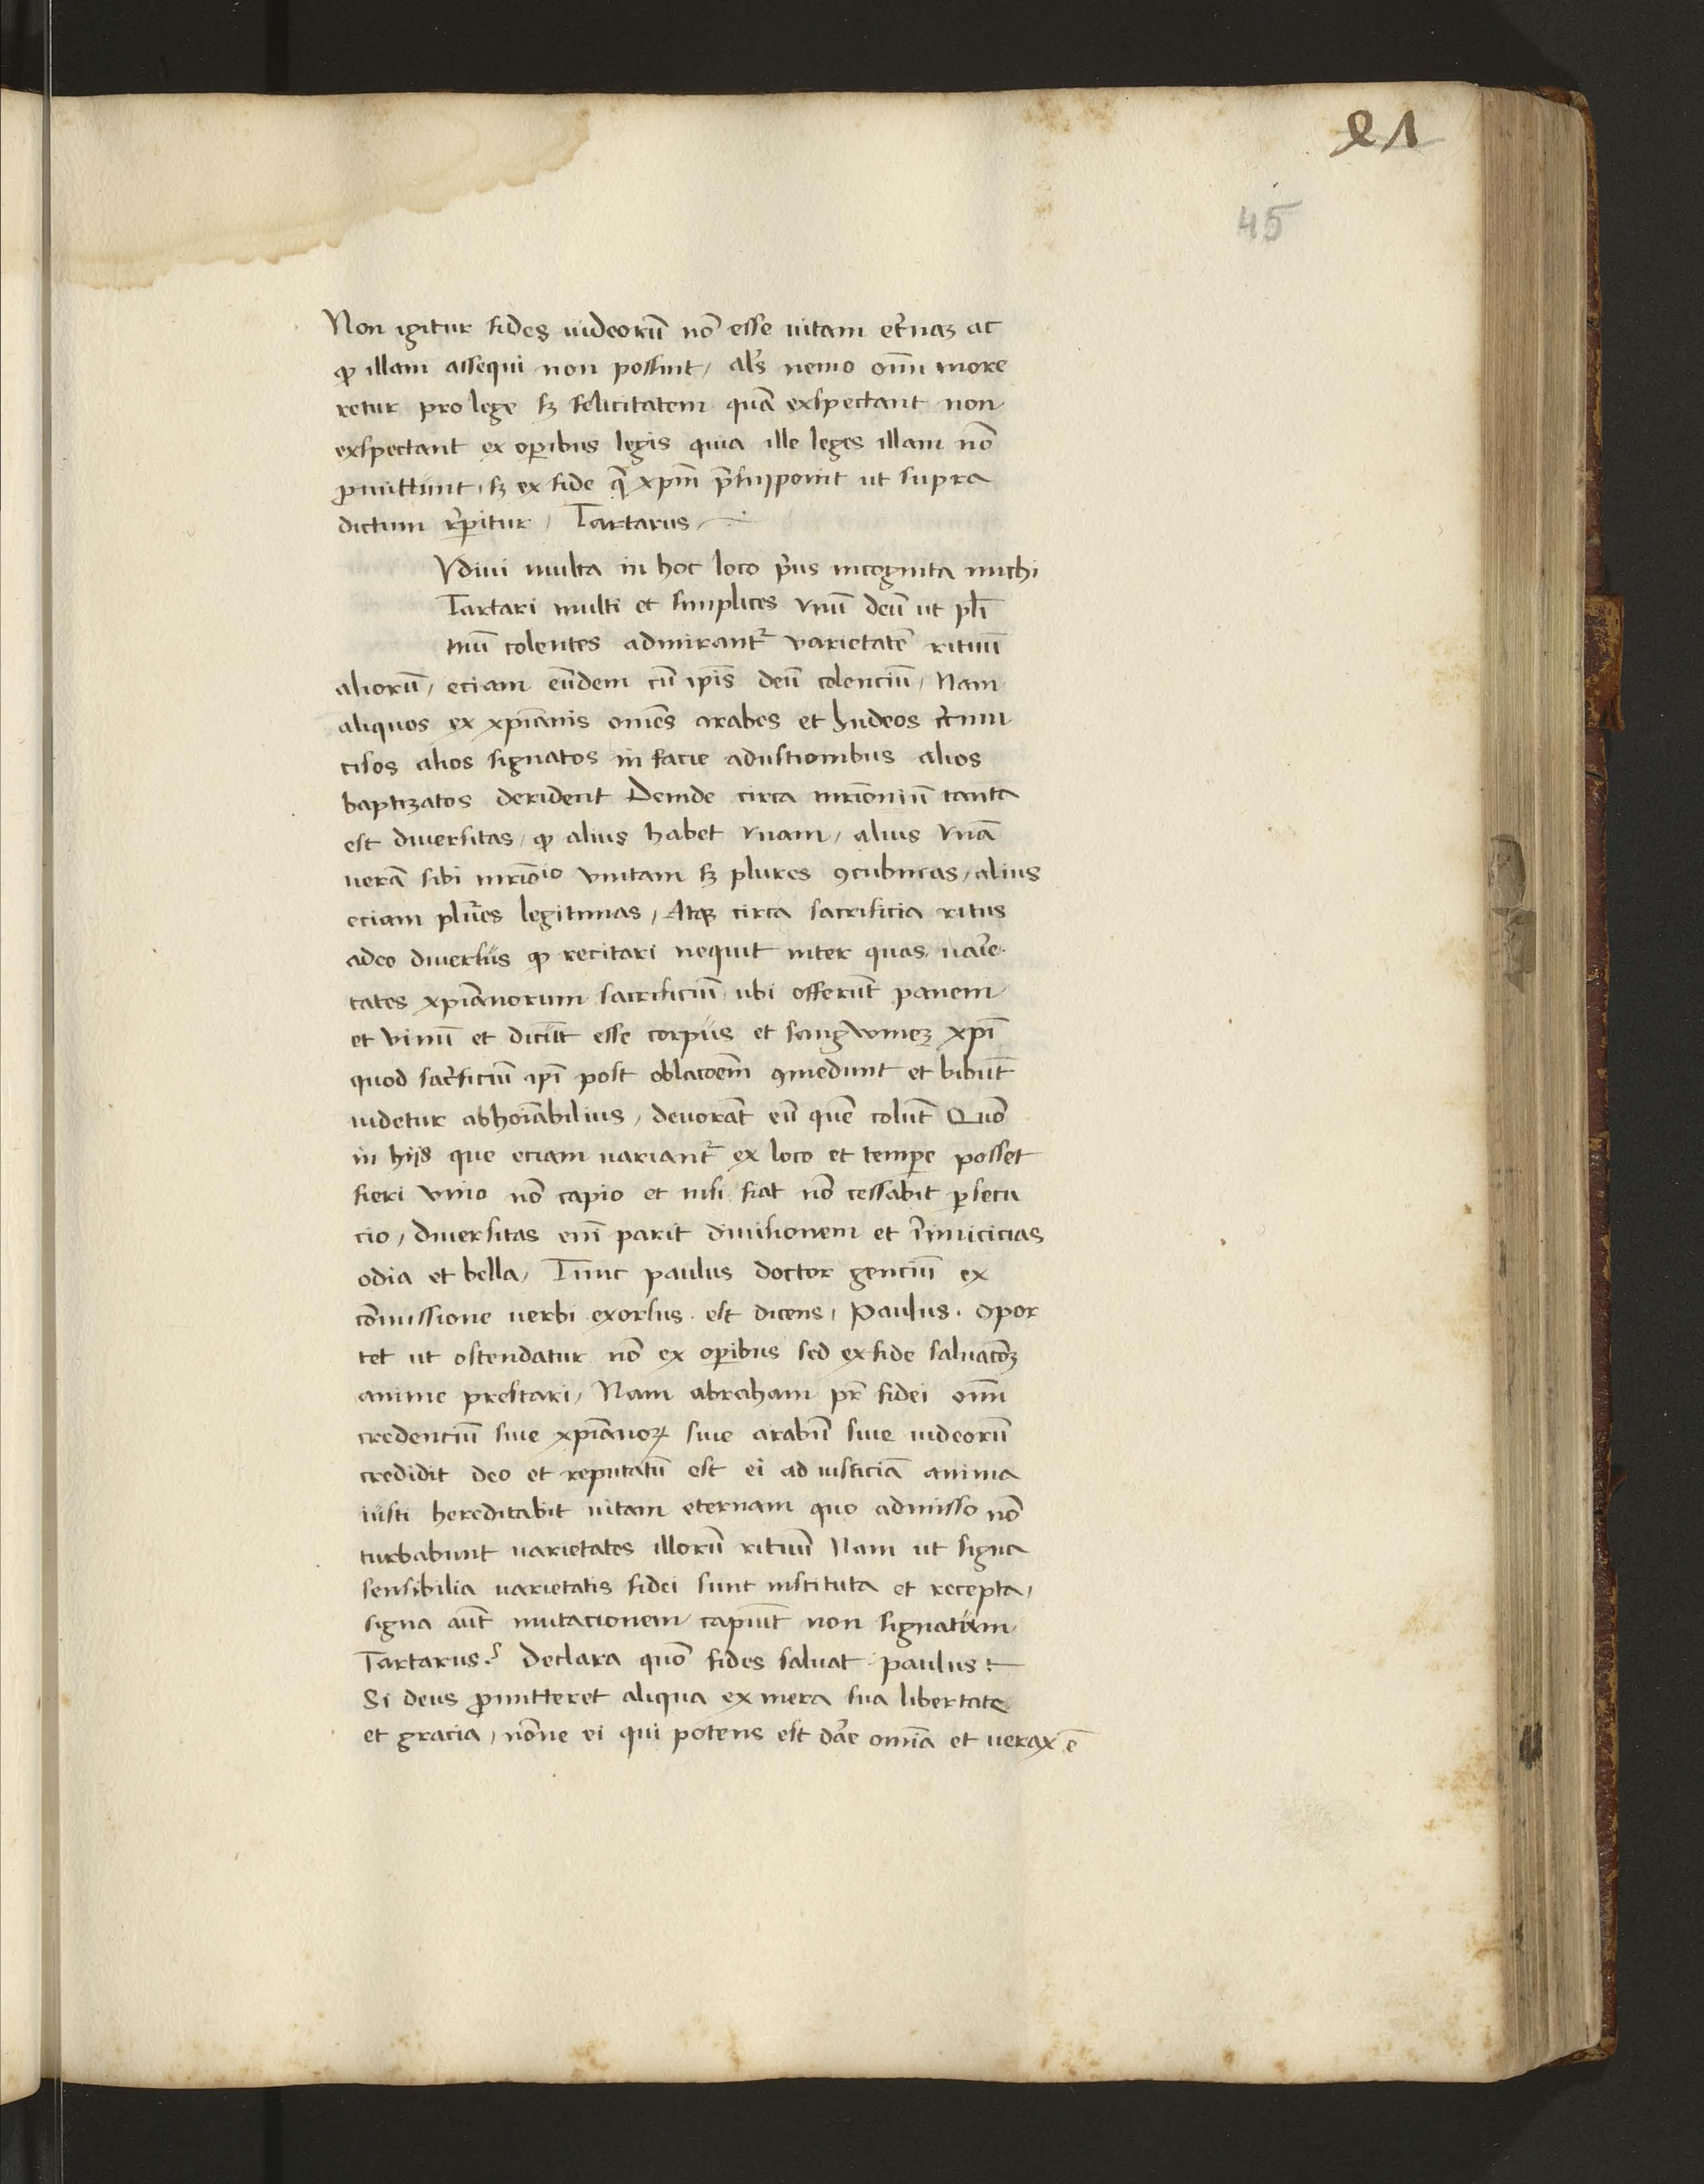 21
45
Non igitur fides iudeorū nō esse uitam et̄naꝫ ac
ꝙ illam assequi non possint, al's nemo om̄i more
retur pro lege sꝫ felicitatem quā exspectant non
exspectant ex oꝑibus legis quia ille leges illam nō
ꝓmittunt, sꝫ ex fide q̄ xp̄m p̄suponit ut supra
dictum r̄peritur, Tartarus
Vdiui multa in hoc loco p̄us incognita michi
Tartari multi et simplices vnū deū ut pl̄i
mū colentes admirant᷑ varietatē rituū
aliorū, eciam eūdem cū ip̄is deū colenciū, Nam
aliquos ex xp̄ianis om̄es arabes et Iudeos c̄cum
cisos alios signatos in facie adustionibus alios
baptizatos derident Deinde circa mr̄ioniū tanta
est diuersitas, ꝙ alius habet vnam, alius vnā
uerā sibi mr̄ōio vnitam sꝫ plures ꝯcubinas, alius
eciam plūes legitimas, Atqꝫ circa sacrificia ritus
adeo diuersus ꝙ recitari nequit inter quas uar̄ie
tates xp̄ianorum sacrificiū ubi offerūt panem
et vinū et dicūt esse corpus et sangwineꝫ xp̄i
quod sac̄ficiū ip̄i post oblac̄oem ꝯmedunt et bibūt
uidetur abhoīabilius, deuorāt eū quē colūt Quō
in hijs que eciam uariant᷑ ex loco et temꝑe posset
fieri vnio nō capio et nisi fiat nō cessabit ꝑsecu
cio, diuersitas em̄ parit diuisionem et inimicicias
odia et bella, Tunc paulus doctor genciū ex
cōmissione uerbi exorsus est dicens, Paulus. opor
tet ut ostendatur nō ex oꝑibus sed ex fide saluac̄oꝫ
anime prestari, Nam abraham pr̄ fidei om̄i
credenciū siue xp̄ianoꝝ siue arabū siue iudeorū
credidit deo et reputatū est ei ad iusticiā anima
iusti hereditabit uitam eternam quo admisso nō
turbabunt uarietates illorū rituū Nam ut signa
sensibilia uarietatis fidei sunt instituta et recepta,
signa aūt mutacionem capiūt non signatum
Tartarus. Declara quō fides saluat. paulus.
Si deus ꝓmitteret aliqua ex mera sua libertate
et gracia, nōne ei qui potens est dāe omīa et uerax ē